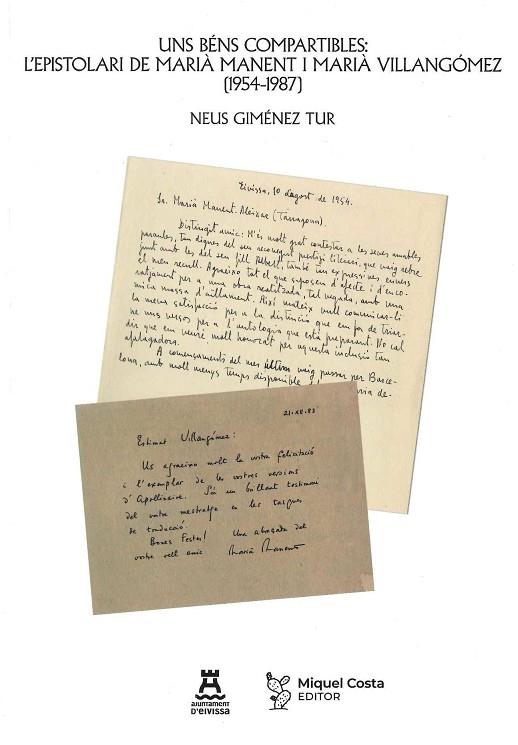 UNS BÉNS COMPARTIBLES:
L'EPISTOLARI DE MARIÀ MANENT I MARIÀ VILLANGÓMEZ
(1954-1987)
NEUS GIMÉNEZ TUR
Eivissa, 10 d'agost de 1954.
Sr. Marià Manent. Aleixar (Tarragona).
Distingit amic: M'és molt grat contestar a les seves amables
paraules, tan dignes del seu reconegut prestigi literari, que vaig rebre
junt amb les del seu fill Albert, també tan expressives, envers
el meu recull. Agraeixo tot el que suposen d'afecte i d'enco-
ratjament per a una obra realitzada, tal vegada, amb una
mica massa d'aïllament. Així mateix vull comunicar-li
la meva satisfacció per a la distinció que em fa de triar-
ne uns versos per a l'antologia que està preparant. No cal
dir que em veuré molt honorat per aquesta inclusió tan
afalagadora.
A començaments del mes últim vaig passar per Barce-
lona, amb molt menys temps disponible
21-XII-83
Estimat Villangómez:
Us agraeixo molt la vostra felicitació
i l'exemplar de les vostres versions
d'Apollinaire. Són un brillant testimoni
del vostre mestratge en les tasques
de traducció.
Bones Festes! Una abraçada del
vostre vell amic Marià Manent
AJUNTAMENT
D'EIVISSA
Miquel Costa
EDITOR